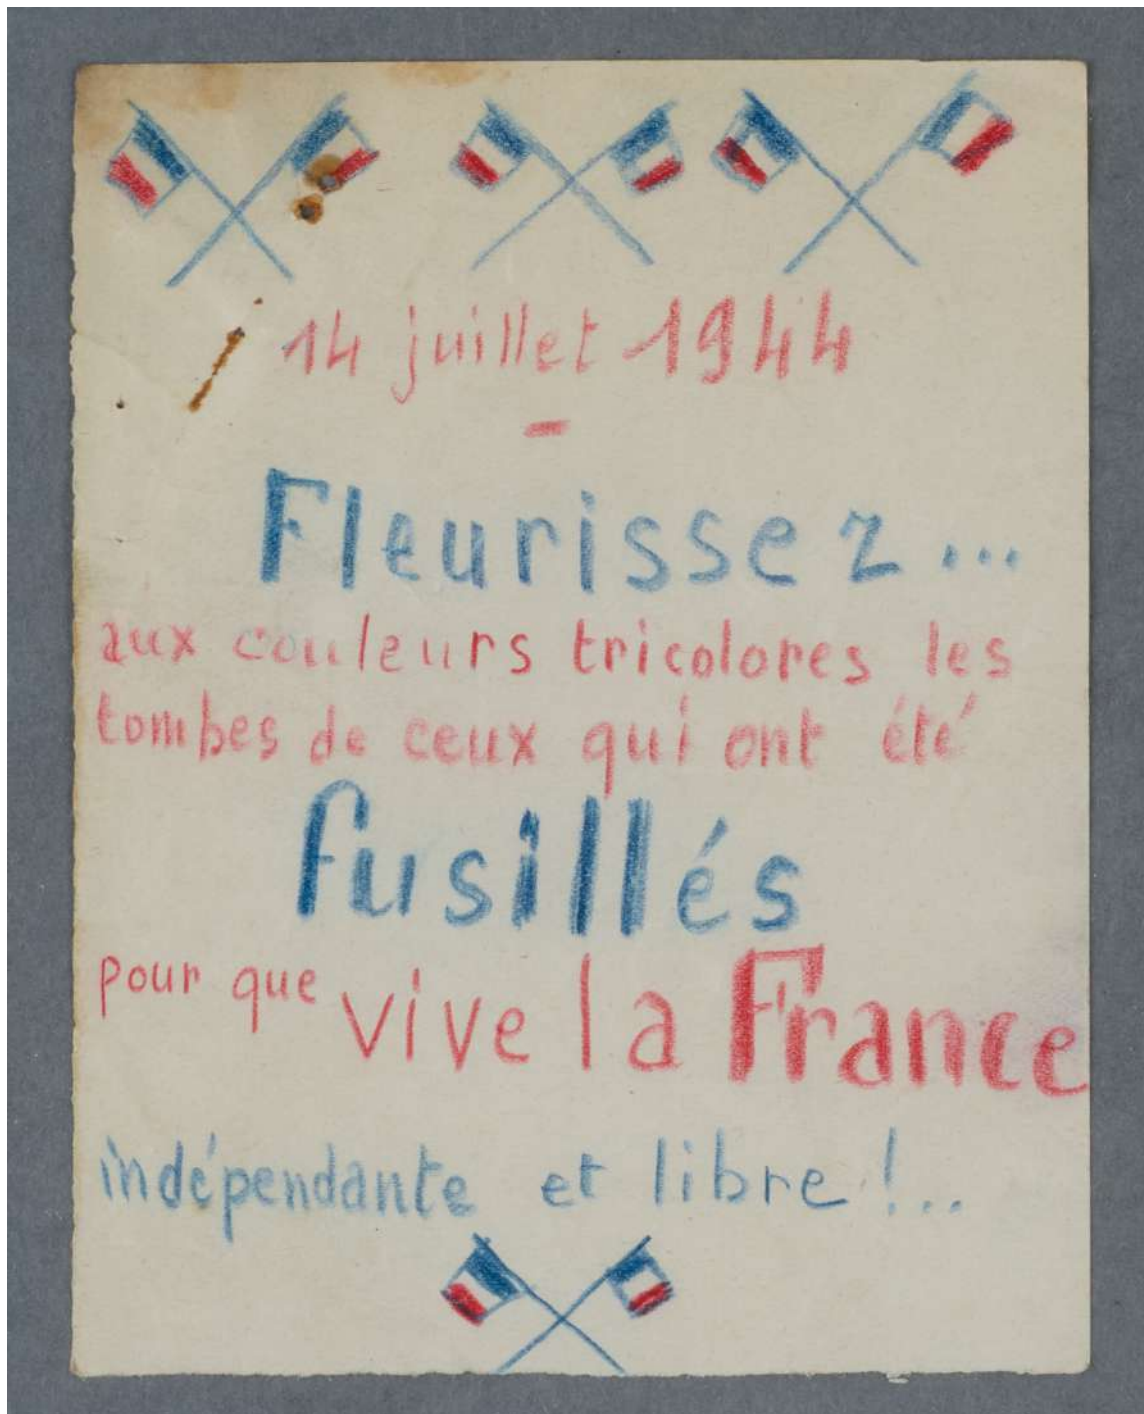 14 juillet 1944
-
Fleurissez...
aux couleurs tricolores les
tombes de ceux qui ont été
fusillés
pour que vive la France
indépendante et libre !..